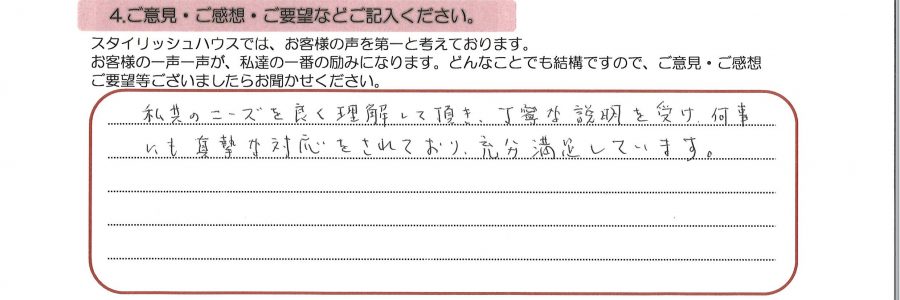 4.ご意見・ご感想・ご要望などご記入ください。
スタイリッシュハウスでは、お客様の声を第一と考えております。
お客様の一声一声が、私達の一番の励みになります。どんなことでも結構ですので、ご意見・ご感想
ご要望等ございましたらお聞かせください。
私共のニーズを良く理解して頂き、丁寧な説明を受け何事
にも真摯な対応をされており、充分満足しています。